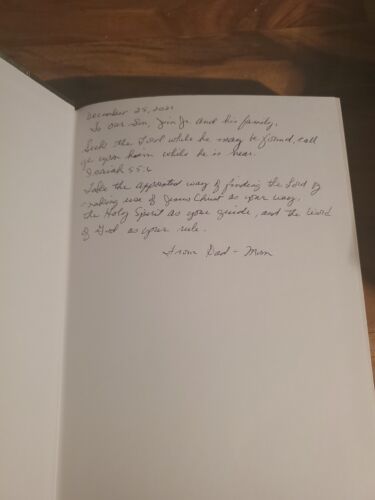 December 25, 2021
To our Son, Jim Jr and his family.
Seek the Lord while he may be found, call
ye upon him while he is near.
Isaiah 55:6
Take the appointed way of finding the Lord by
making use of Jesus Christ as your way,
the Holy Spirit as your guide, and the Word
of God as your rule.
From Dad - Mom